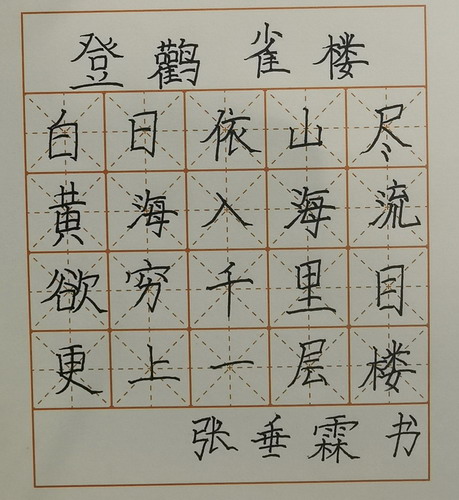 登鹳雀楼
白日依山尽
黄海入海流
欲穷千里目
更上一层楼
张垂霖书